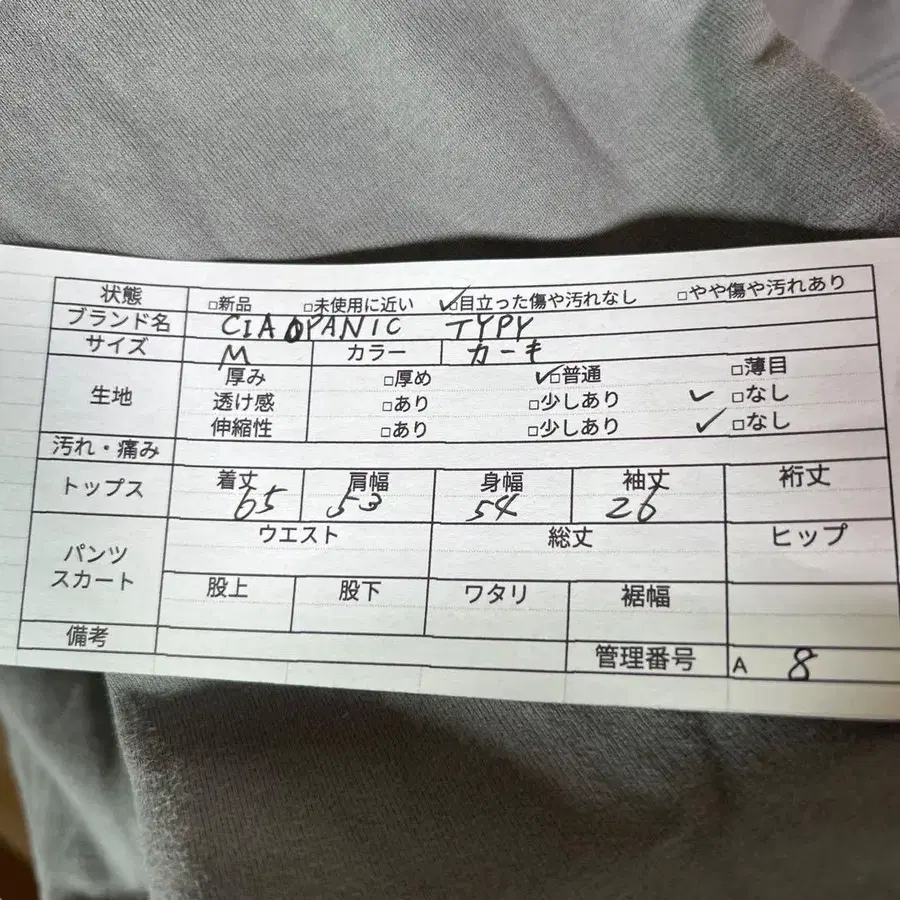 状態 □新品 □未使用に近い ✓□目立った傷や汚れなし □やや傷や汚れあり
ブランド名 CIAOPANIC TYPY
サイズ M カラー カーキ
生地 厚み □厚め ✓□普通 □薄目
透け感 □あり □少しあり ✓□なし
伸縮性 □あり □少しあり ✓□なし
汚れ・痛み
トップス 着丈 65 肩幅 53 身幅 54 袖丈 26 裄丈
パンツ スカート ウエスト 総丈 ヒップ
股上 股下 ワタリ 裾幅
備考 管理番号 A 8